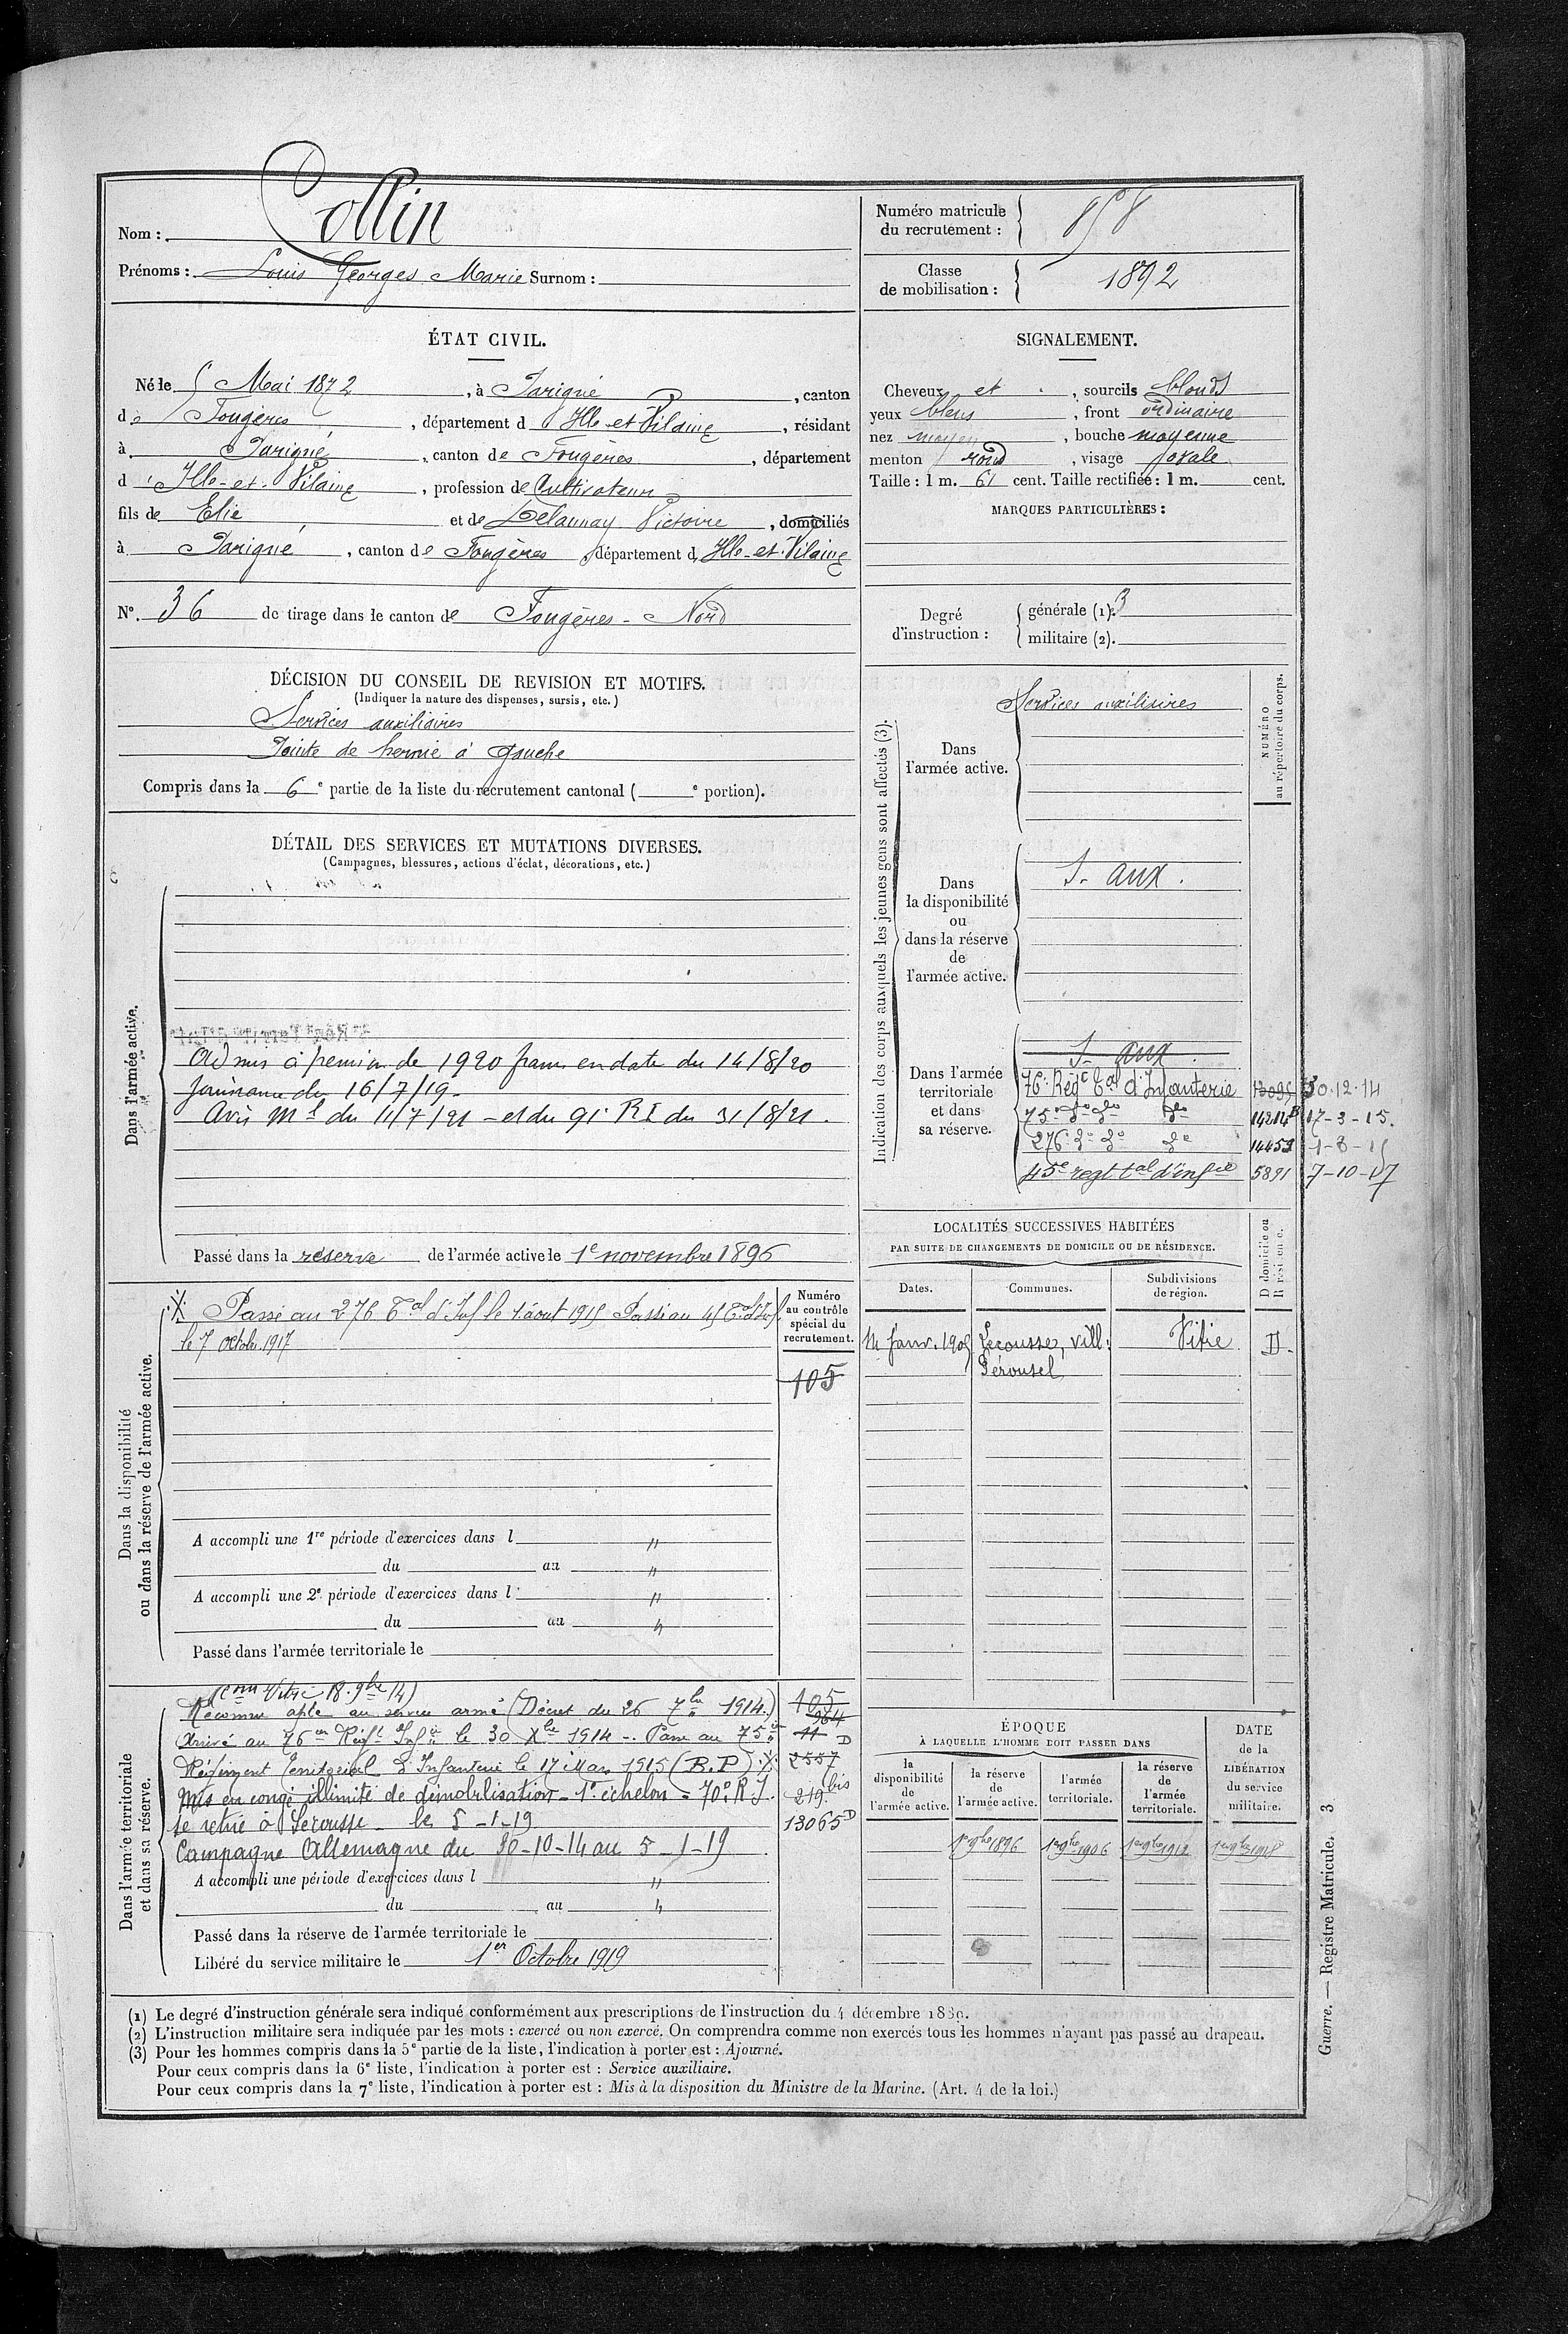 Nom : Collin
Prénoms : Louis Georges Marie Surnom :
Numéro matricule du recrutement : 858
Classe de mobilisation : 1892
ÉTAT CIVIL.
Né le 5 Mai 1872, à Parigné, canton
de Fougères, département d Ille-et-Vilaine, résidant
à Parigné, canton de Fougères, département
d Ille-et-Vilaine, profession de Cultivateur
fils de Elie et de Delaunay Victoire, domiciliés
à Parigné, canton de Fougères, département d Ille-et-Vilaine
N°. 36 de tirage dans le canton de Fougères-Nord
SIGNALEMENT.
Cheveux et , sourcils blonds
yeux bleus, front ordinaire
nez moyen, bouche moyenne
menton rond, visage ovale
Taille : 1 m. 61 cent. Taille rectifiée : 1 m. cent.
MARQUES PARTICULIÈRES :
Degré d'instruction : générale (1). 3
militaire (2).
DÉCISION DU CONSEIL DE REVISION ET MOTIFS.
(Indiquer la nature des dispenses, sursis, etc.)
Services auxiliaires
Pointe de hernie à gauche
Compris dans la 6e partie de la liste du recrutement cantonal ( e portion).
DÉTAIL DES SERVICES ET MUTATIONS DIVERSES.
(Campagnes, blessures, actions d'éclat, décorations, etc.)
Dans l'armée active.
Admis à pension de 1920 francs en date du 14/8/20
jouissance du 16/7/19-
Avis Mel du 11/7/21 - et du 91e RI du 31/8/21.
Passé dans la réserve de l'armée active le 1e novembre 1896
Indication des corps auxquels les jeunes gens sont affectés (3).
NUMÉRO au répertoire du corps.
Dans l'armée active.
Services auxiliaires
Dans la disponibilité ou dans la réserve de l'armée active.
S. aux.
Dans l'armée territoriale et dans sa réserve.
S. aux.
76e Régt Tal d'Infanterie 13095 30.12.14
75e do do do 14214B 17-3-15.
276 do do do 14453 1-8-15
45e regt tal d'infie 5891 7-10-17
LOCALITÉS SUCCESSIVES HABITÉES
PAR SUITE DE CHANGEMENTS DE DOMICILE OU DE RÉSIDENCE.
D domicile ou R résidence.
Dates. Communes. Subdivisions de région.
11 Janv. 1905 Lecousse, vill: Vitré D.
Pérousel
Dans la disponibilité ou dans la réserve de l'armée active.
Numéro au contrôle spécial du recrutement.
Passé au 276 Tal d'Inf le 1 août 1915 Passé au 45 Tal d'Inf
le 7 octobre 1917
105
A accompli une 1re période d'exercices dans l "
du au "
A accompli une 2e période d'exercices dans l "
du au "
Passé dans l'armée territoriale le
Dans l'armée territoriale et dans sa réserve.
(Con Vitré 18.9bre 14)
Reconnu apte au service armé (Décret du 26 7bre 1914.) 105
964
Arrivé au 76en Régt Infie le 30 Xbre 1914 -. Passé au 75e 11 D
Régiment Territorial d'Infanterie le 17 Mars 1915 (B.P) 2557
Mis en congé illimité de démobilisation - 1e échelon - 70e R I. 219 bis
se retire à Lécousse - le 5-1-19 13065D
Campagne Allemagne du 30-10-14 au 5-1-19
A accompli une période d'exercices dans l "
du au "
Passé dans la réserve de l'armée territoriale le
Libéré du service militaire le 1er Octobre 1919
ÉPOQUE
À LAQUELLE L'HOMME DOIT PASSER DANS
la disponibilité de l'armée active. la réserve de l'armée active. l'armée territoriale. la réserve de l'armée territoriale.
DATE de la LIBÉRATION du service militaire.
1er 9bre 1896 1er 9bre 1906 1er 9bre 1912 1er 9bre 1918
(1) Le degré d'instruction générale sera indiqué conformément aux prescriptions de l'instruction du 4 décembre 1889.
(2) L'instruction militaire sera indiquée par les mots : exercé ou non exercé. On comprendra comme non exercés tous les hommes n'ayant pas passé au drapeau.
(3) Pour les hommes compris dans la 5e partie de la liste, l'indication à porter est : Ajourné.
Pour ceux compris dans la 6e liste, l'indication à porter est : Service auxiliaire.
Pour ceux compris dans la 7e liste, l'indication à porter est : Mis à la disposition du Ministre de la Marine. (Art. 4 de la loi.)
Guerre. — Registre Matricule. 3